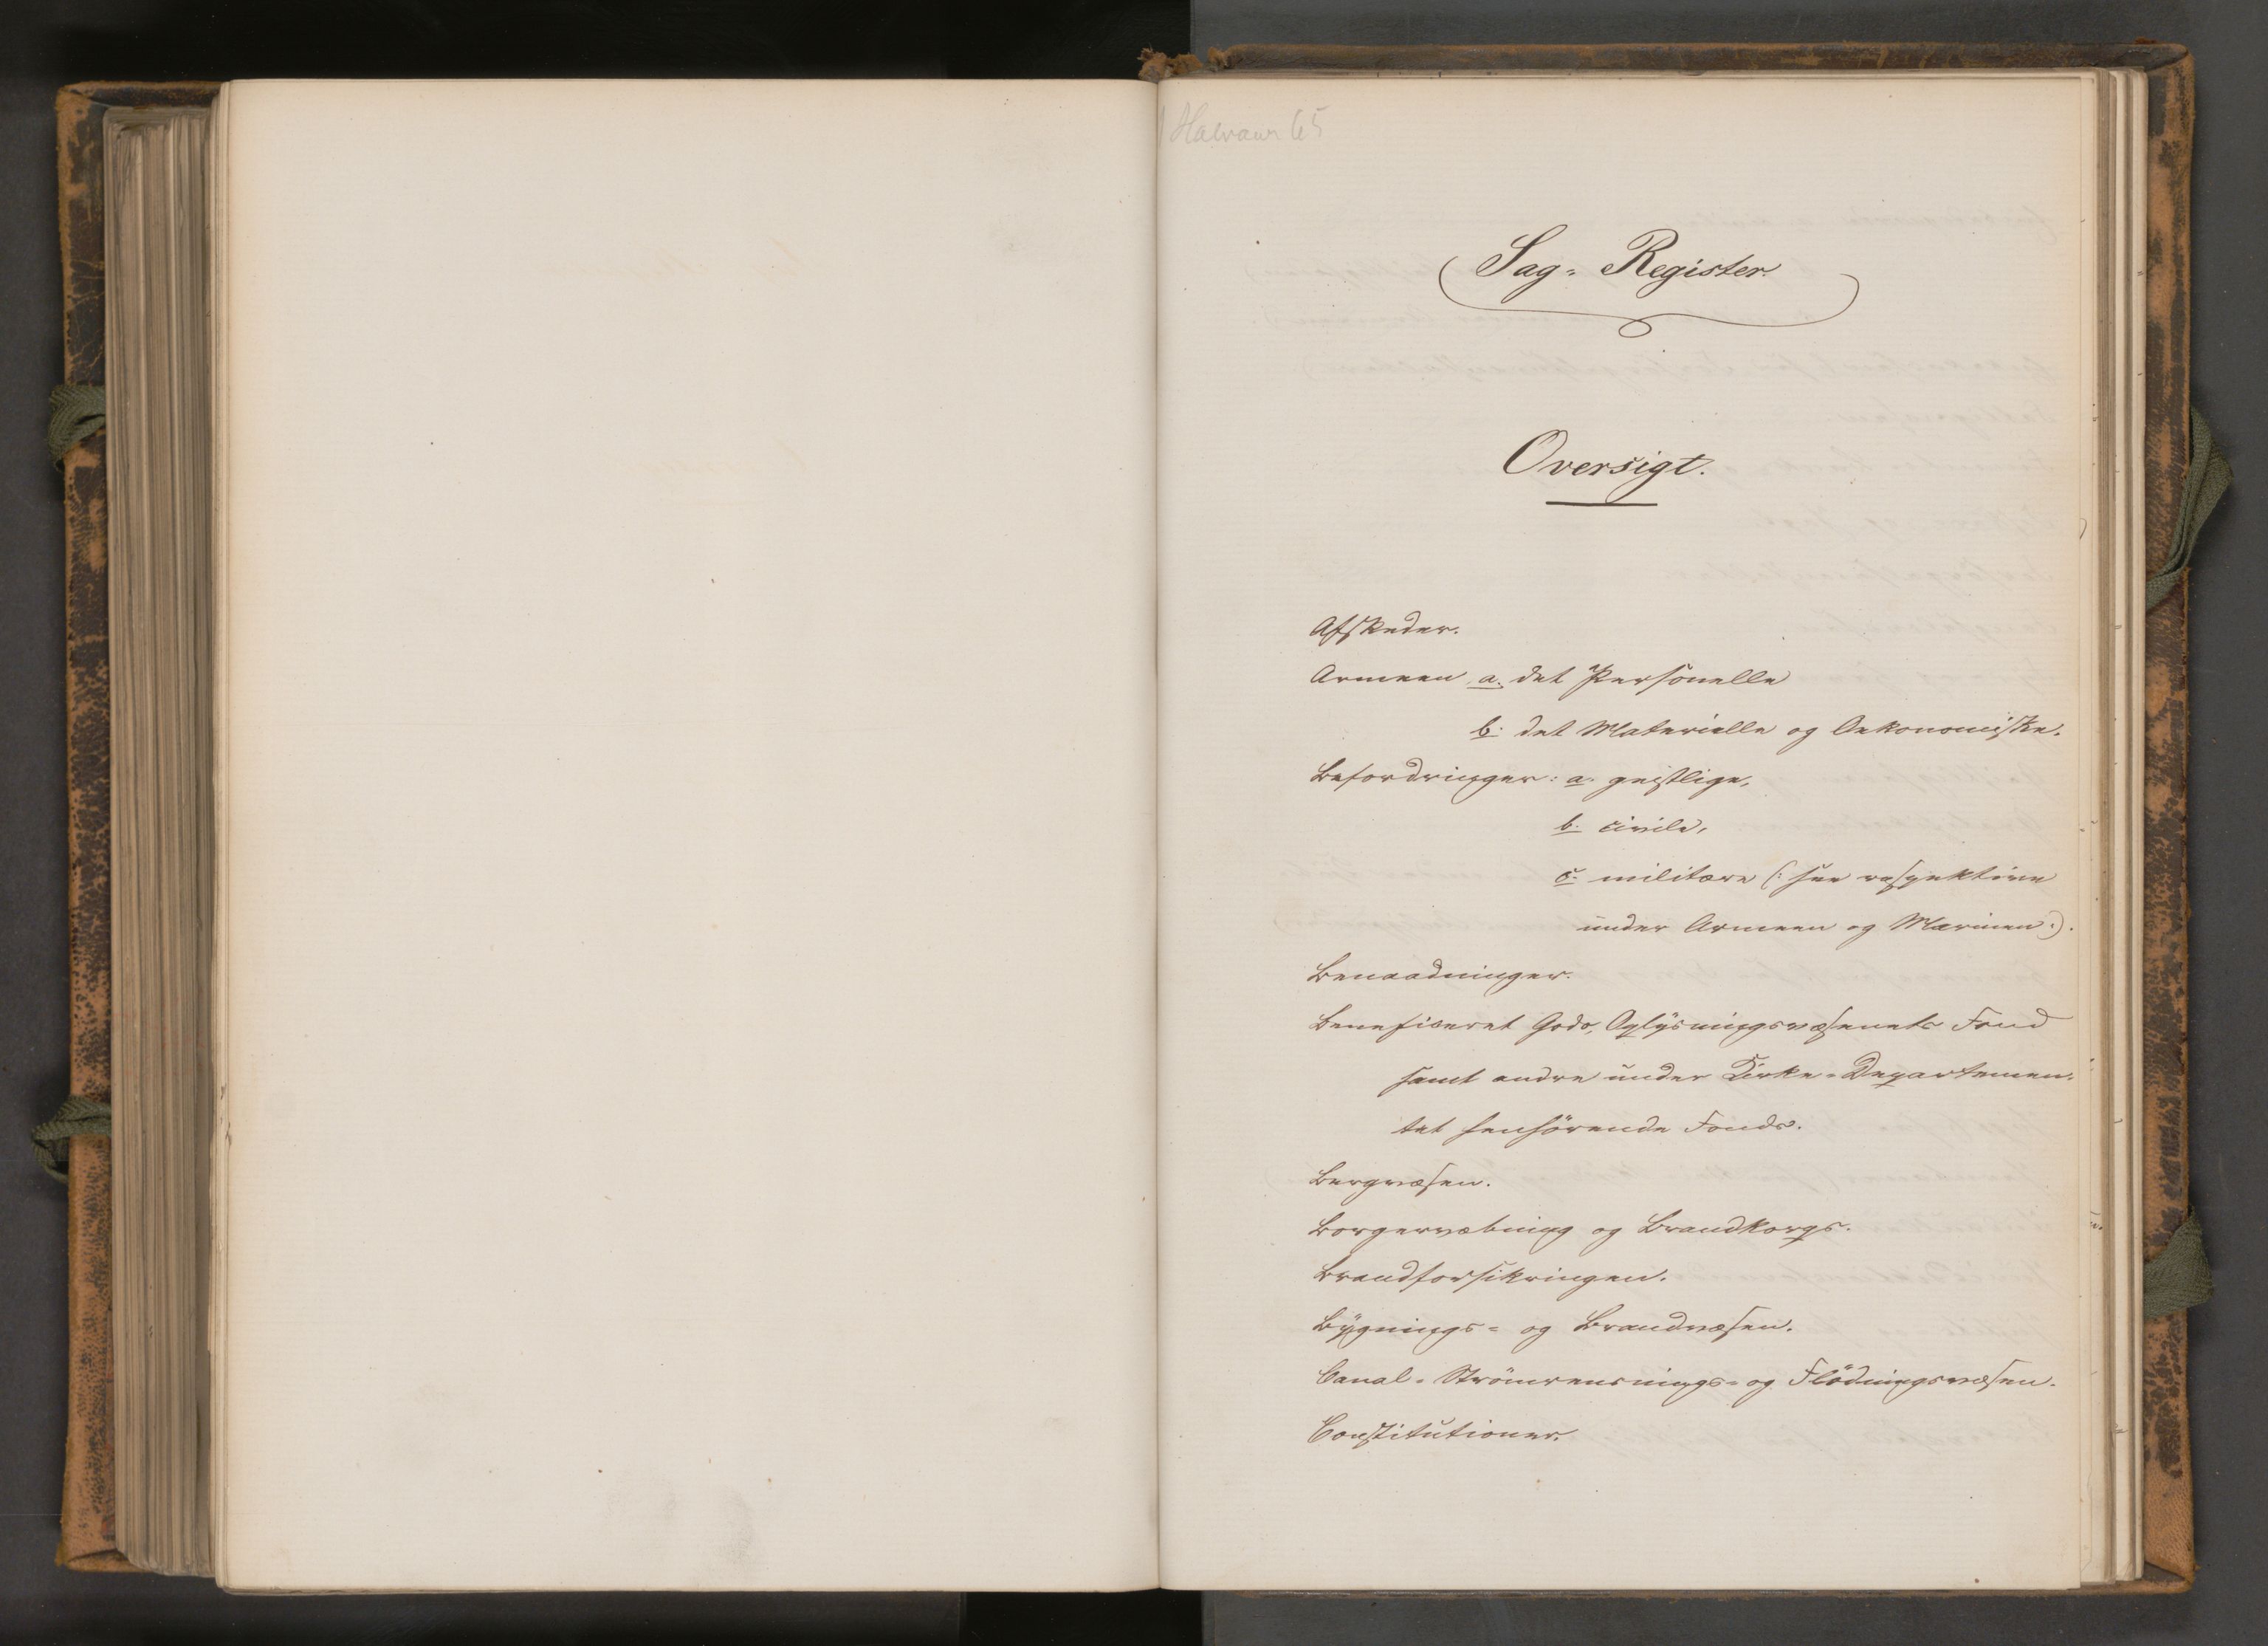 1 Halvaar 65
Sag-Register.
Oversigt.
Afskeder.
Armeen a. det Personelle
b. det Materielle og Oekonomiske.
Befordringer: a. geistlige,
b. civile,
c. militære (: see respektive
under Armeen og Marinen :).
Benaadninger.
Beneficeret Gods, Oplysningsvæsenets Fond
samt andre under Kirke-Departemen-
tet henhörende Fonds.
Bergvæsen.
Borgervæbning og Brandkorps.
Brandforsikringen.
Bygnings- og Brandvæsen.
Canal- Strömrensnings- og Flödningsvæsen.
Constitutioner.